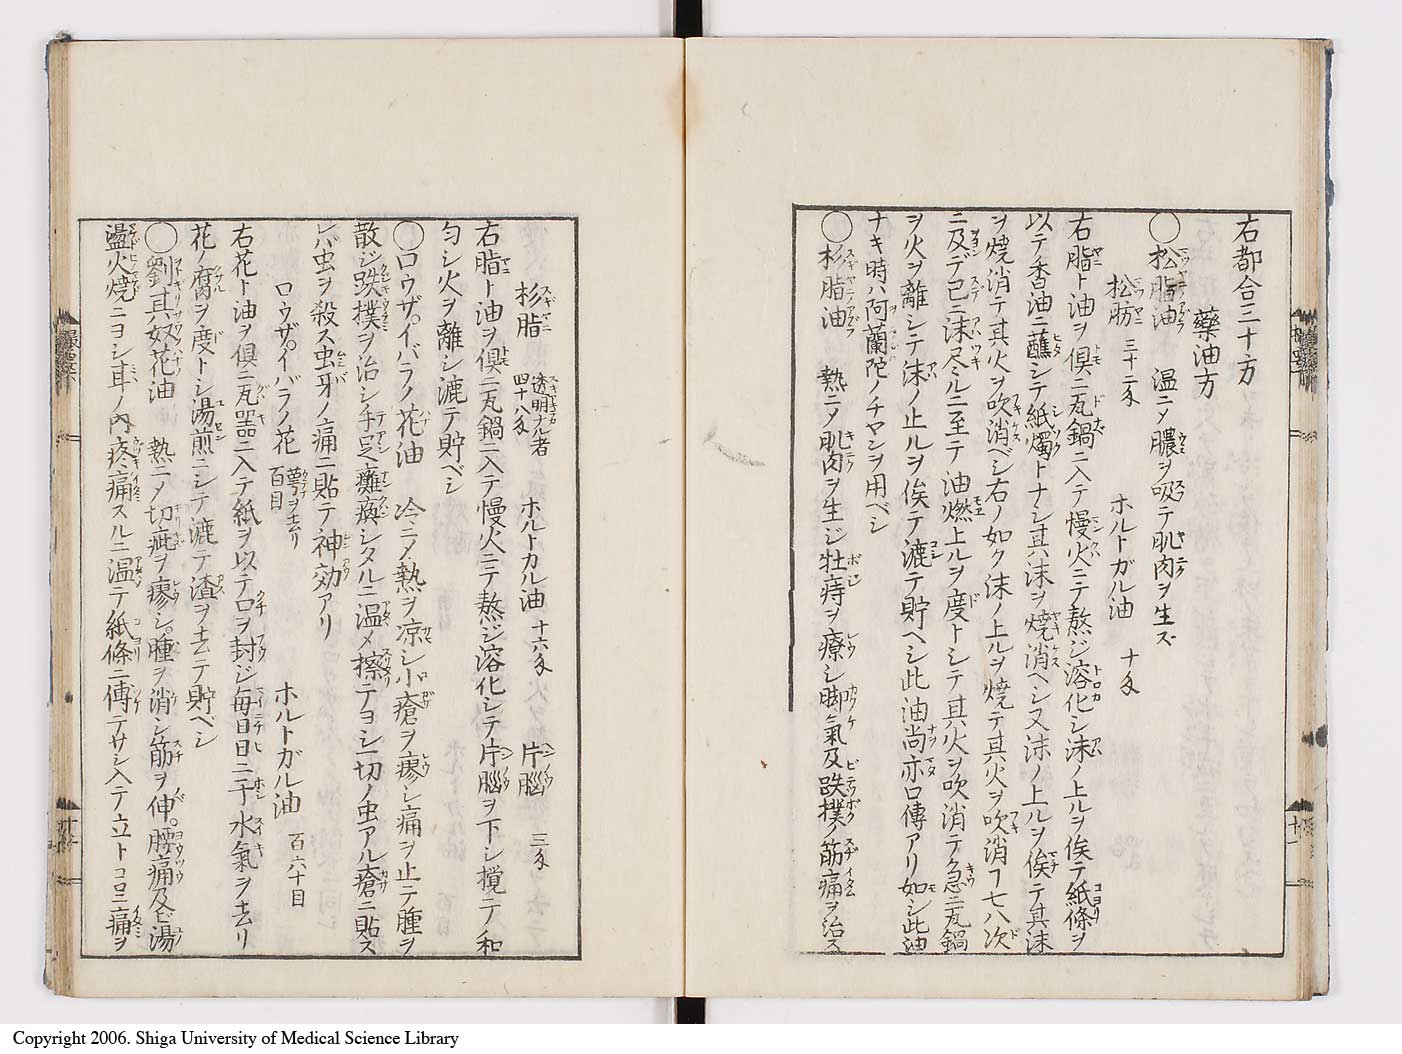 右都合三十方
藥油方
◯松脂油 温ニメ膿ヲ吸テ肌肉ヲ生ズ
松肪 三十二匁 ホルトガル油 十匁
右脂ト油ヲ倶ニ瓦鍋ニ入テ慢火ニテ熬ジ溶化シ沫ノ上ルヲ俟テ紙條ヲ
以テ香油ニ蘸シテ紙燭トナシ其沫ヲ焼消ヘシ又沫ノ上ルヲ俟テ其沫
ヲ焼消テ其火ヲ吹消ベシ右ノ如ク沫ノ上ルヲ焼テ其火ヲ吹消ヿ七八次
ニ及デ已ニ沫尽ルニ至テ油燃上ルヲ度トシテ其火ヲ吹消テ急ニ瓦鍋
ヲ火ヲ離シテ沫ノ止ルヲ俟テ漉テ貯ヘシ此油尚亦口傳アリ如シ此油
ナキ時ハ阿蘭陀ノチヤンヲ用ベシ
◯杉脂油 熱ニメ肌肉ヲ生ジ牡痔ヲ療シ脚氣及跌撲ノ筋痛ヲ治ス
杉脂 透明ナル者 四十八匁 ホルトカル油 十六匁 片腦 三匁
右脂ト油ヲ倶ニ瓦鍋ニ入テ慢火ニテ熬ジ溶化シテ片腦ヲ下シ攪ニテ和
匀シ火ヲ離シ漉テ貯ベシ
◯ロウザイバラノ花油 冷ニメ熱ヲ凉シ小瘡ヲ瘳シ痛ヲ止テ腫ヲ
散ジ跌撲ヲ治シ手足ノ癱瘓シタルニ温メ擦テヨシ一切ノ虫アル瘡ニ貼ス
レバ虫ヲ殺ス虫牙ノ痛ニ貼テ神効アリ
ロウザイバラノ花 百目 萼ヲ去リ ホルトガル油 百六十目
右花ト油ヲ倶ニ瓦噐ニ入テ紙ヲ以テ口ヲ封ジ毎日日ニ干水氣ヲ去リ
花ノ腐ヲ度トシ湯煎ニシテ漉テ渣ヲ去テ貯ベシ
◯劉其奴花油 熱ニメ切疵ヲ瘳シ腫ヲ消シ筋ヲ伸。腰痛及ビ湯
盪火焼ニヨシ耳ノ内疼痛スルニ温テ紙條ニ傅テサシ入テ立トコロニ痛ヲ
Copyright 2006. Shiga University of Medical Science Library